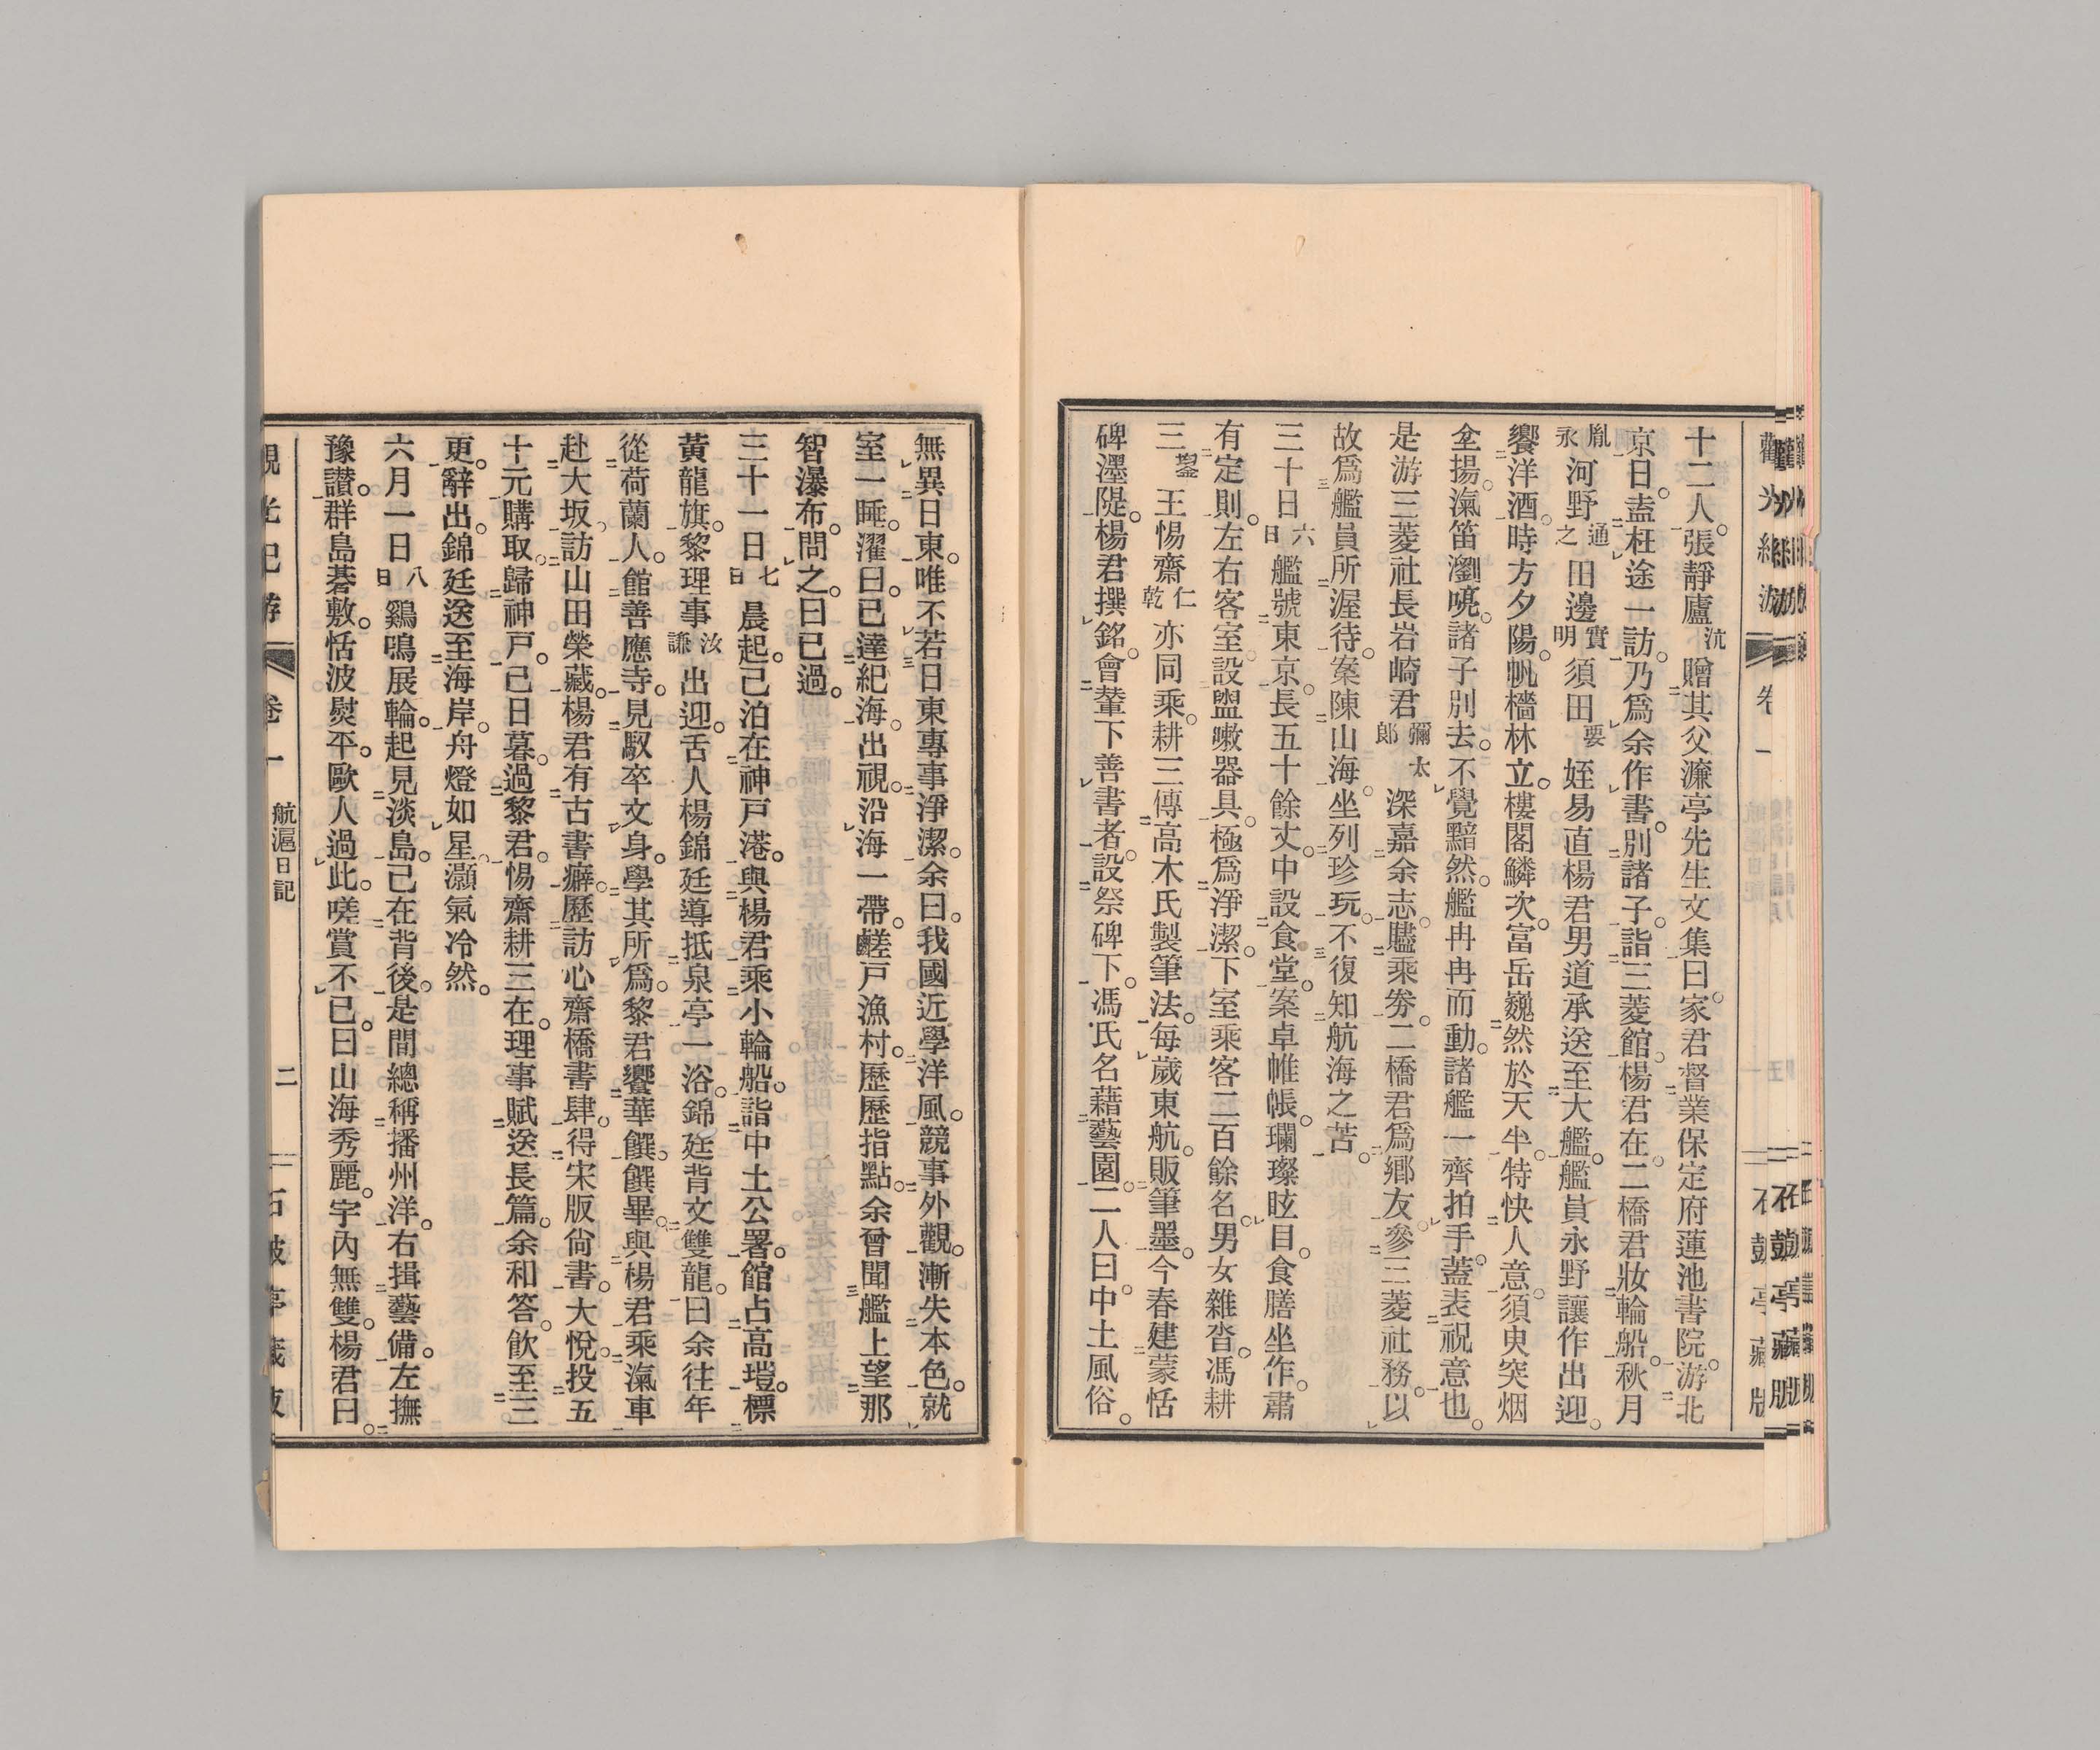 十二人。張靜廬沆贈其父濂亭先生文集曰。家君督業保定府蓮池書院。游北
京日。盍枉途一訪。乃爲余作書。別諸子。詣三菱館。楊君在二橋君妝輪船。秋月
胤永河野通之田邊實明須田要姪易直楊君男道承送至大艦。艦員永野讓作出迎。
饗洋酒。時方夕陽。帆檣林立。樓閣鱗次。富岳巍然於天半。特快人意。須臾突烟
坌揚。滊笛瀏喨。諸子別去。不覺黯然。艦冉冉而動。諸艦一齊拍手。蓋表祝意也。
是游三菱社長岩崎君彌太郎深嘉余志。贐乘劵。二橋君爲鄕友。參三菱社務。以
故爲艦員所渥待。案陳山海。坐列珍玩。不復知航海之苦。
三十日六日艦號東京。長五十餘丈。中設食堂。案卓帷帳。瓓璨眩目。食膳坐作。肅
有定則。左右客室。設盥嗽器具。極爲淨潔。下室乘客二百餘名。男女雜沓。馮耕
三鋆王惕齋仁乾亦同乘。耕三傳高木氏製筆法。每歲東航。販筆墨。今春建蒙恬
碑濹隄。楊君撰銘。會輦下善書者。設祭碑下。馮氏名藉藝園。二人曰。中土風俗。
無異日東。唯不若日東專事淨潔。余曰。我國近學洋風。競事外觀。漸失本色。就
室一睡。濯曰。已達紀海。出視。沿海一帶。鹺戶漁村。歷歷指點。余曾聞艦上望那
智瀑布。問之。曰已過。
三十一日七日晨起。已泊在神戶港。與楊君乘小輪船。詣中土公署。館占高塏。標
黃龍旗。黎理事汝謙出迎。舌人楊錦廷導抵泉亭一浴。錦廷背文雙龍。曰余往年
從荷蘭人。館善應寺。見馭卒文身。學其所爲。黎君饗華饌。饌畢。與楊君乘滊車
赴大坂。訪山田榮藏。楊君有古書癖。歷訪心齋橋書肆。得宋版尙書。大悅。投五
十元購取。歸神戶。已日暮。過黎君。惕齋耕三在。理事賦送長篇。余和答。飮至三
更。辭出。錦廷送至海岸。舟燈如星。灝氣冷然。
六月一日八日鷄鳴展輪。起見淡島。已在背後。是間總稱播州洋。右揖藝備。左撫
豫讃。群島碁敷。恬波熨平。歐人過此。嗟賞不已。曰山海秀麗。宇內無雙。楊君曰。
卷一
航滬日記
二